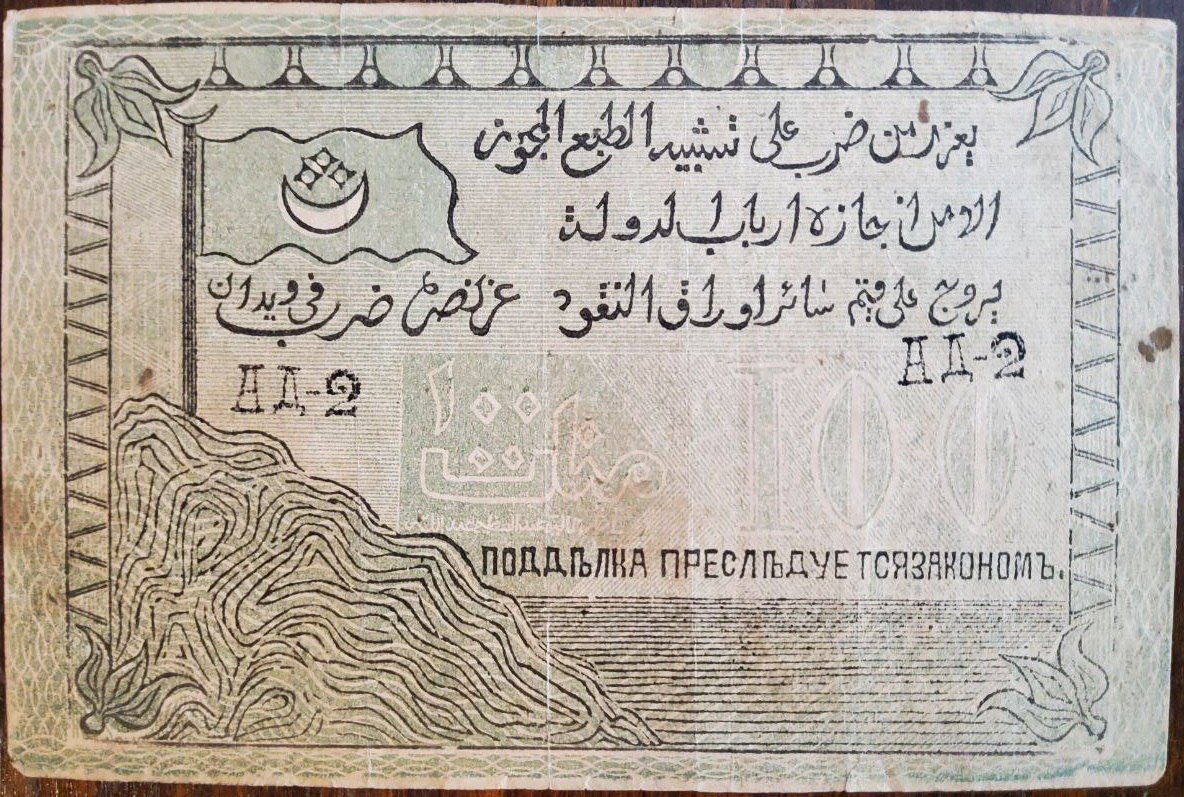 يعزر من ضرب على تشبيه الطبع المجوز
الا من اجازه ارباب الدولة
يروج على قيم سائر اوراق النقود عز نصره ضرب في ويدان
АД-2 АД-2
١٠٠ منات 100
ПОДДѢЛКА ПРЕСЛѢДУЕТСЯЗАКОНОМЪ.